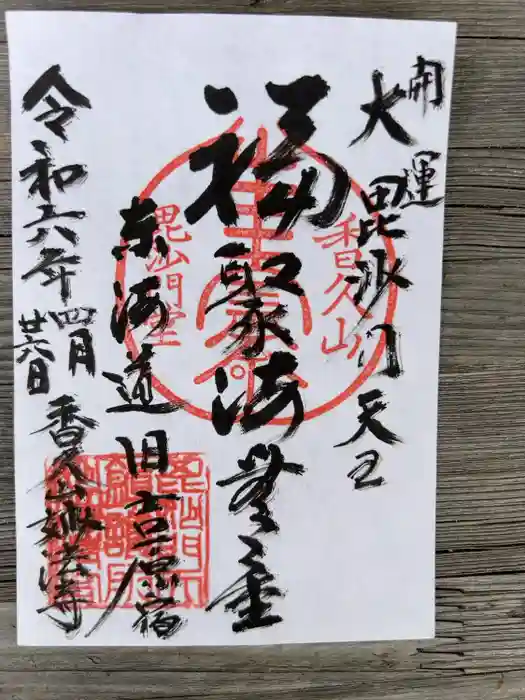 開運
大毘沙門天王
福聚海無量
東海道旧吉原宿
令和六年四月
廿六日
香久山妙法寺
香久山
毘沙門堂